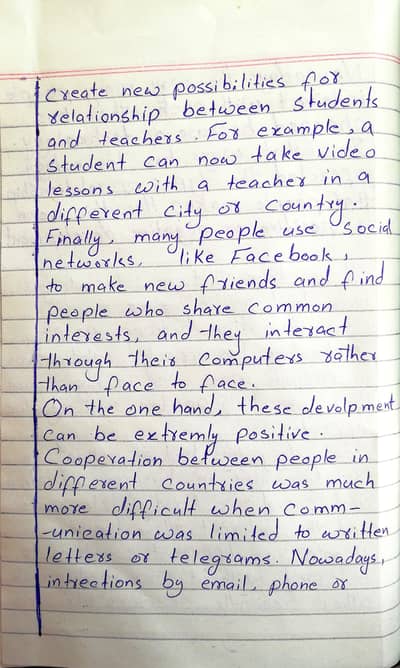 Create new possibilities for
relationship between students
and teachers. For example, a
student can now take video
lessons with a teacher in a
different city or country.
Finally, many people use social
networks, like Facebook,
to make new friends and find
people who share common
interests, and they interact
through their computers rather
than face to face.
On the one hand, these devolpment
can be extremly positive.
Cooperation between people in
different countries was much
more difficult when comm-
-unication was limited to written
letters or telegrams. Nowadays,
intrections by email, phone or